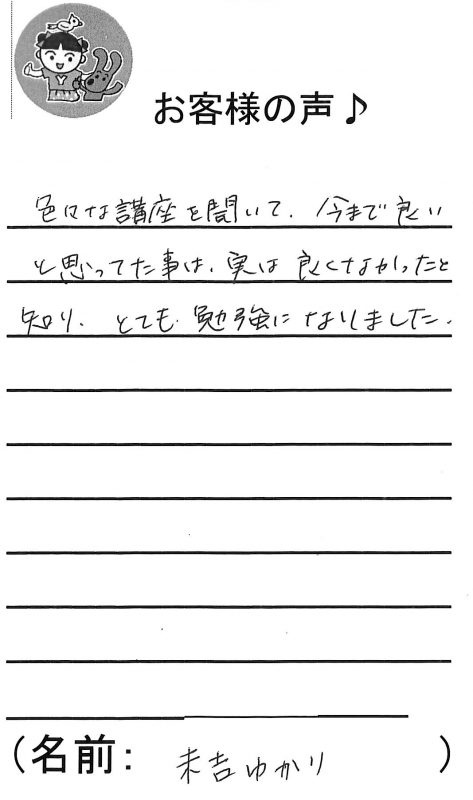 お客様の声♪
色々な講座を聞いて、今まで良い
と思ってた事は、実は良くなかったと
知り、とても勉強になりました。
(名前: 末吉ゆかり )